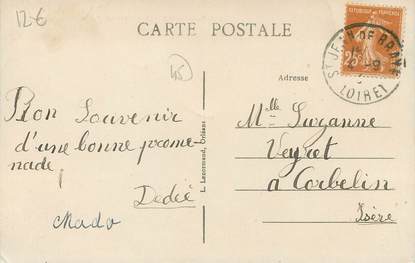 12€
CARTE POSTALE
45
REPUBLIQUE FRANÇAISE
25c
ST JEAN DE BRAYE
LOIRET
Adresse
Bon Souvenir
d'une bonne prome-
nade
Dédée
Mado
L. Lecormand, Orléans
Mlle Suzanne
Veyret
a Corbelin
Isère